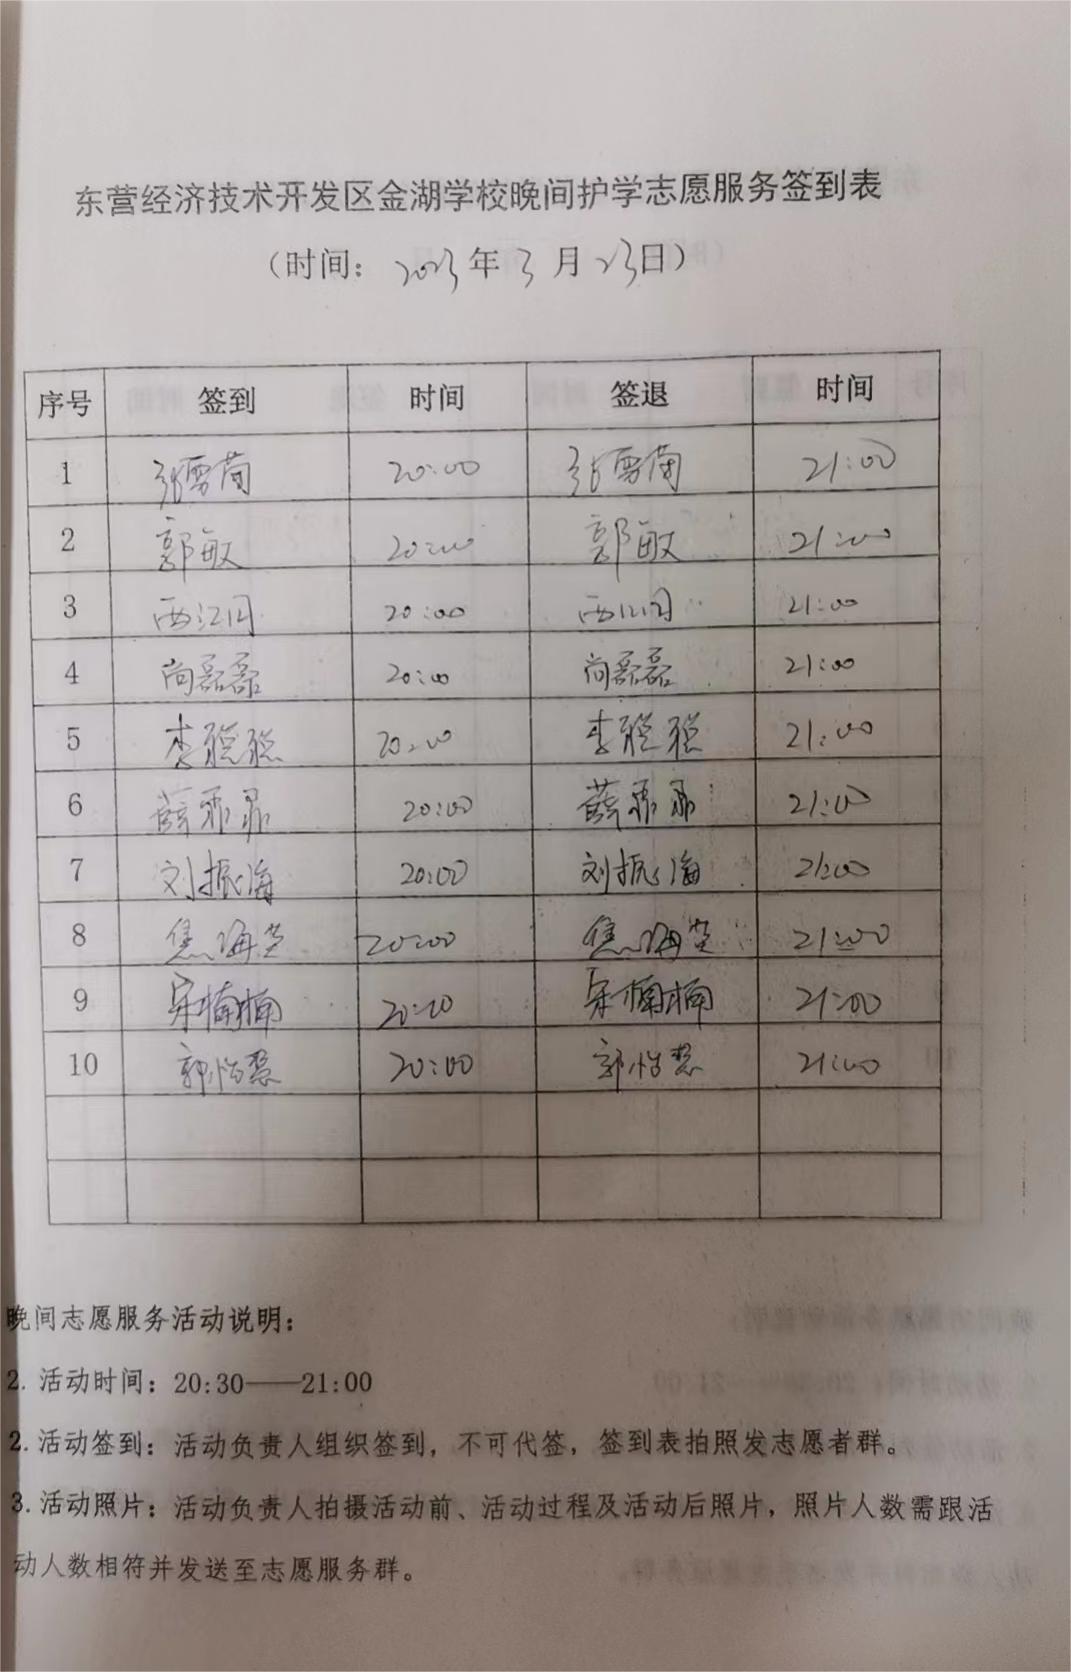 东营经济技术开发区金湖学校晚间护学志愿服务签到表
（时间：2023年3月23日）
序号 签到 时间 签退 时间
1 张雪菊 20:00 张雪菊 21:00
2 郭敏 20:00 郭敏 21:00
3 西江闪 20:00 西江闪 21:00
4 尚磊磊 20:00 尚磊磊 21:00
5 李聪聪 20:00 李聪聪 21:00
6 薛乖乖 20:00 薛乖乖 21:00
7 刘振海 20:00 刘振海 21:00
8 焦海芝 20:00 焦海芝 21:00
9 宋楠楠 20:20 宋楠楠 21:00
10 郭怡慧 20:00 郭怡慧 21:00
晚间志愿服务活动说明：
2. 活动时间：20:30——21:00
2. 活动签到：活动负责人组织签到，不可代签，签到表拍照发志愿者群。
3. 活动照片：活动负责人拍摄活动前、活动过程及活动后照片，照片人数需跟活
动人数相符并发送至志愿服务群。